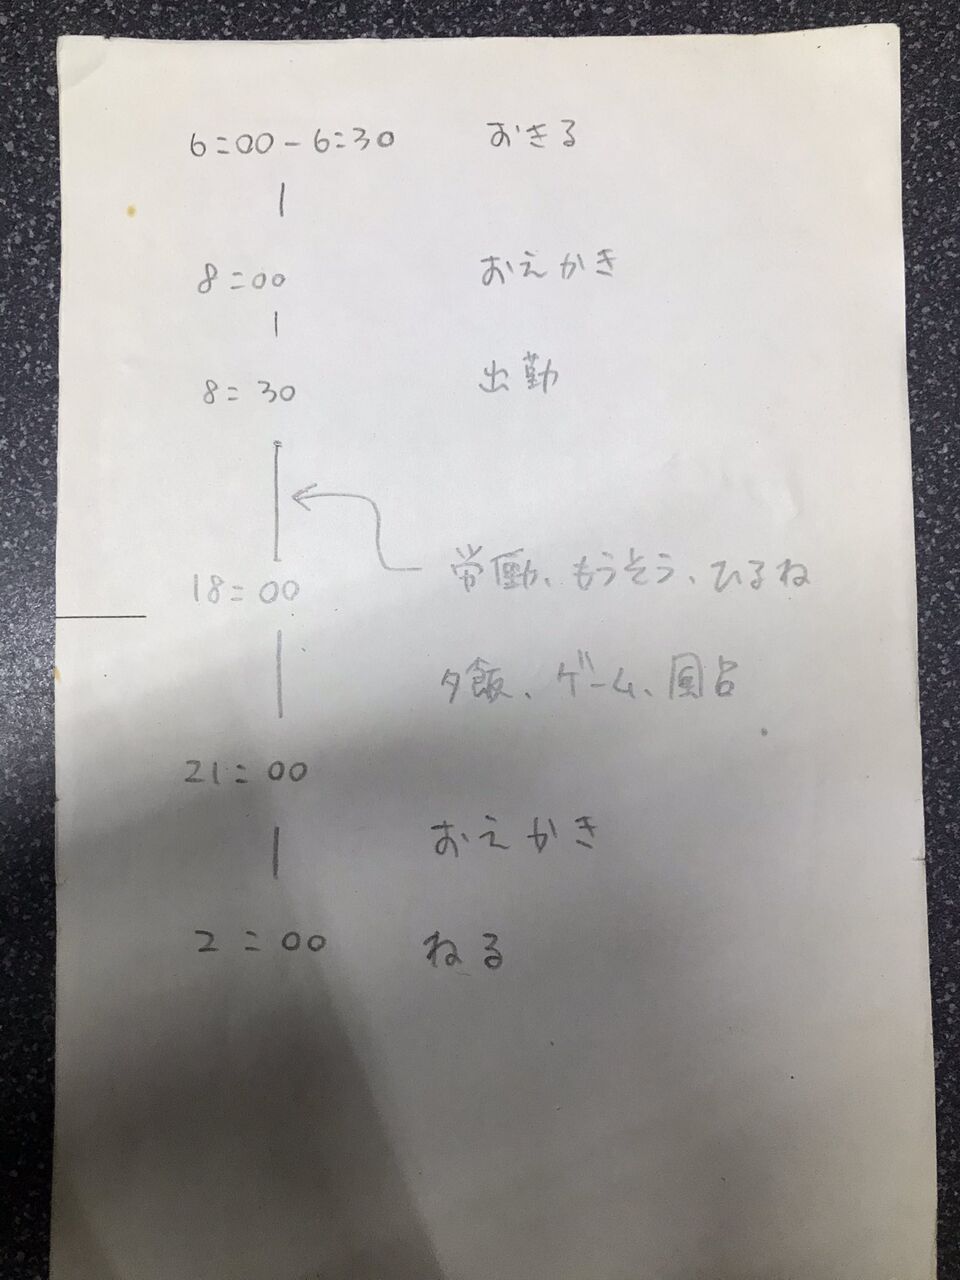 6:00-6:30 おきる
8:00 おえかき
8:30 出勤
労働、もうそう、ひるね
18:00
夕飯、ゲーム、
21:00
おえかき
2:00 ねる